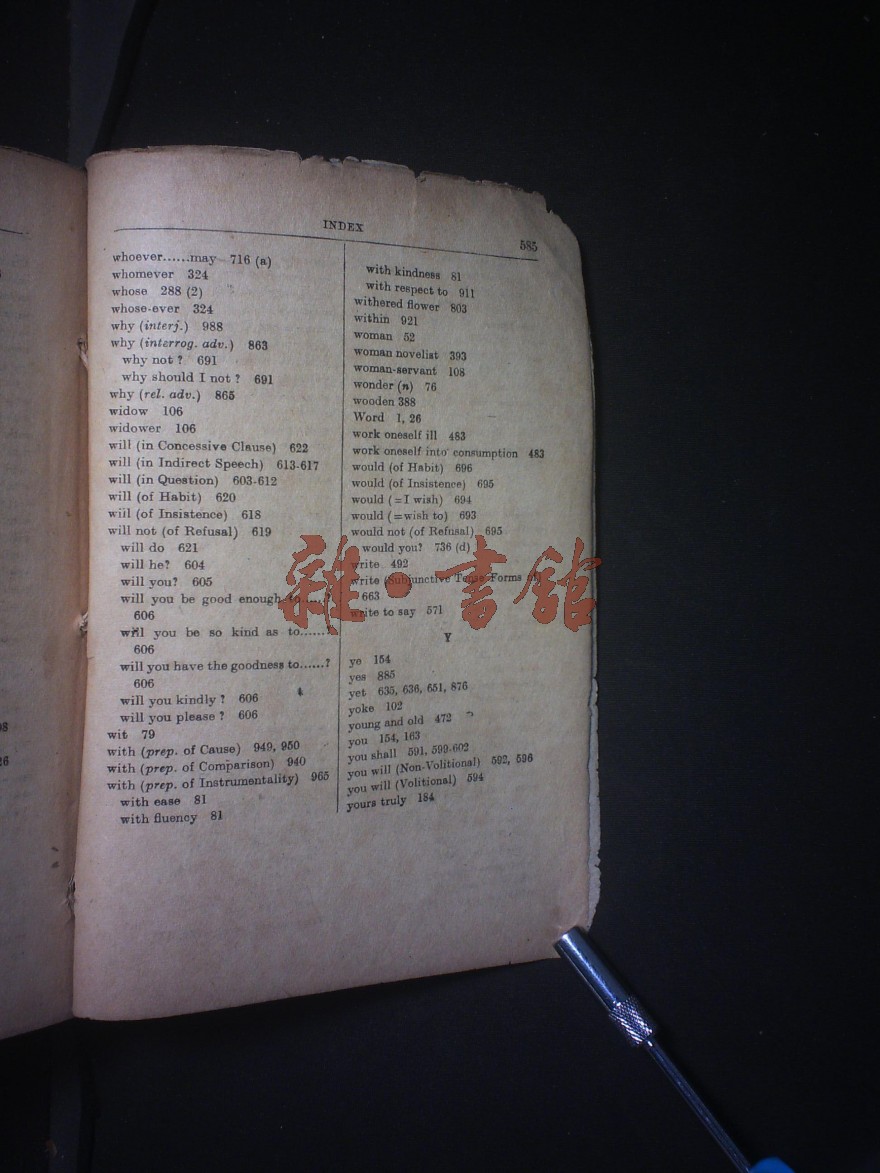 INDEX
585
whoever......may 716 (a)
whomever 324
whose 288 (2)
whose-ever 324
why (interj.) 988
why (interrog. adv.) 863
why not ? 691
why should I not ? 691
why (rel. adv.) 865
widow 106
widower 106
will (in Concessive Clause) 622
will (in Indirect Speech) 613-617
will (in Question) 603-612
will (of Habit) 620
will (of Insistence) 618
will not (of Refusal) 619
will do 621
will he? 604
will you? 605
will you be good enough to......?
606
will you be so kind as to......?
606
will you have the goodness to......?
606
will you kindly ? 606
will you please ? 606
wit 79
with (prep. of Cause) 949, 950
with (prep. of Comparison) 940
with (prep. of Instrumentality) 965
with ease 81
with fluency 81
with kindness 81
with respect to 911
withered flower 803
within 921
woman 52
woman novelist 393
woman-servant 108
wonder (n) 76
wooden 388
Word 1, 26
work oneself ill 483
work oneself into consumption 483
would (of Habit) 696
would (of Insistence) 695
would (=I wish) 694
would (=wish to) 693
would not (of Refusal) 695
would you? 736 (d)
write 492
write (Subjunctive Tense-Forms of)
663
write to say 571
Y
ye 154
yes 885
yet 635, 636, 651, 876
yoke 102
young and old 472
you 154, 163
you shall 591, 599-602
you will (Non-Volitional) 592, 596
you will (Volitional) 594
yours truly 184
雜·書館